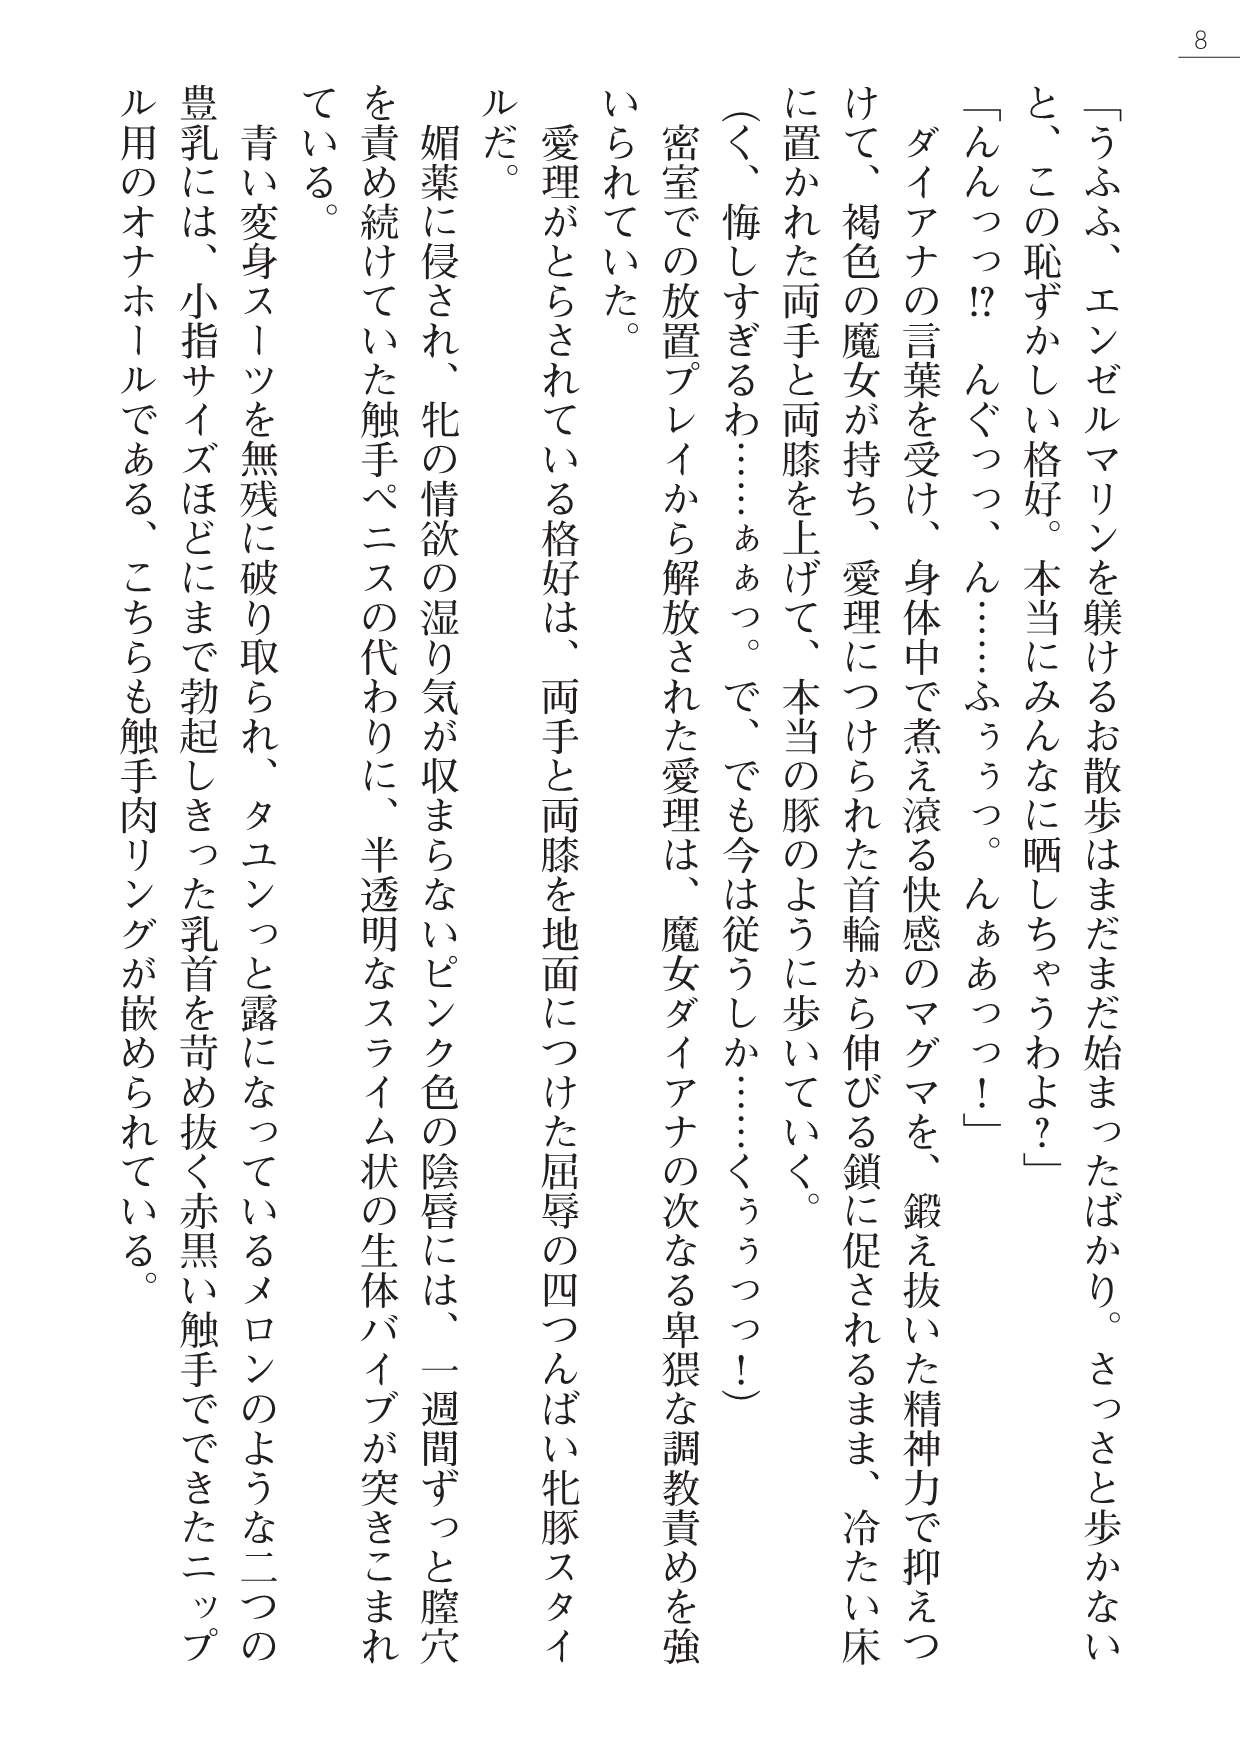 8
「うふふ、エンゼルマリンを躾けるお散歩はまだまだ始まったばかり。さっさと歩かない
と、この恥ずかしい格好。本当にみんなに晒しちゃうわよ?」
「んんっっ!?　んぐっっ、ん……ふぅぅっ。んぁあっっ!」
　ダイアナの言葉を受け、身体中で煮え滾る快感のマグマを、鍛え抜いた精神力で抑えつ
けて、褐色の魔女が持ち、愛理につけられた首輪から伸びる鎖に促されるまま、冷たい床
に置かれた両手と両膝を上げて、本当の豚のように歩いていく。
(く、悔しすぎるわ……ぁぁっ。で、でも今は従うしか……くぅぅっっ!)
　密室での放置プレイから解放された愛理は、魔女ダイアナの次なる卑猥な調教責めを強
いられていた。
　愛理がとらされている格好は、両手と両膝を地面につけた屈辱の四つんばい牝豚スタイ
ルだ。
　媚薬に侵され、牝の情欲の湿り気が収まらないピンク色の陰唇には、一週間ずっと膣穴
を責め続けていた触手ペニスの代わりに、半透明なスライム状の生体バイブが突きこまれ
ている。
　青い変身スーツを無残に破り取られ、タユンっと露になっているメロンのような二つの
豊乳には、小指サイズほどにまで勃起しきった乳首を苛め抜く赤黒い触手でできたニップ
ル用のオナホールである、こちらも触手肉リングが嵌められている。